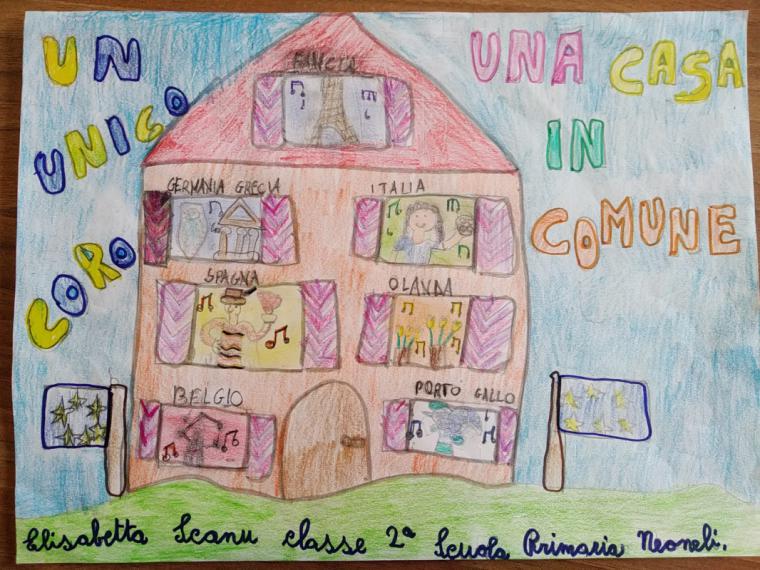 UN
UNICO
CORO
UNA CASA
IN
COMUNE
FANCIA
GERMANIA GRECIA
ITALIA
SPAGNA
OLANDA
BELGIO
PORTO GALLO
Elisabetta Scanu classe 2ª Scuola Primaria Neoneli.